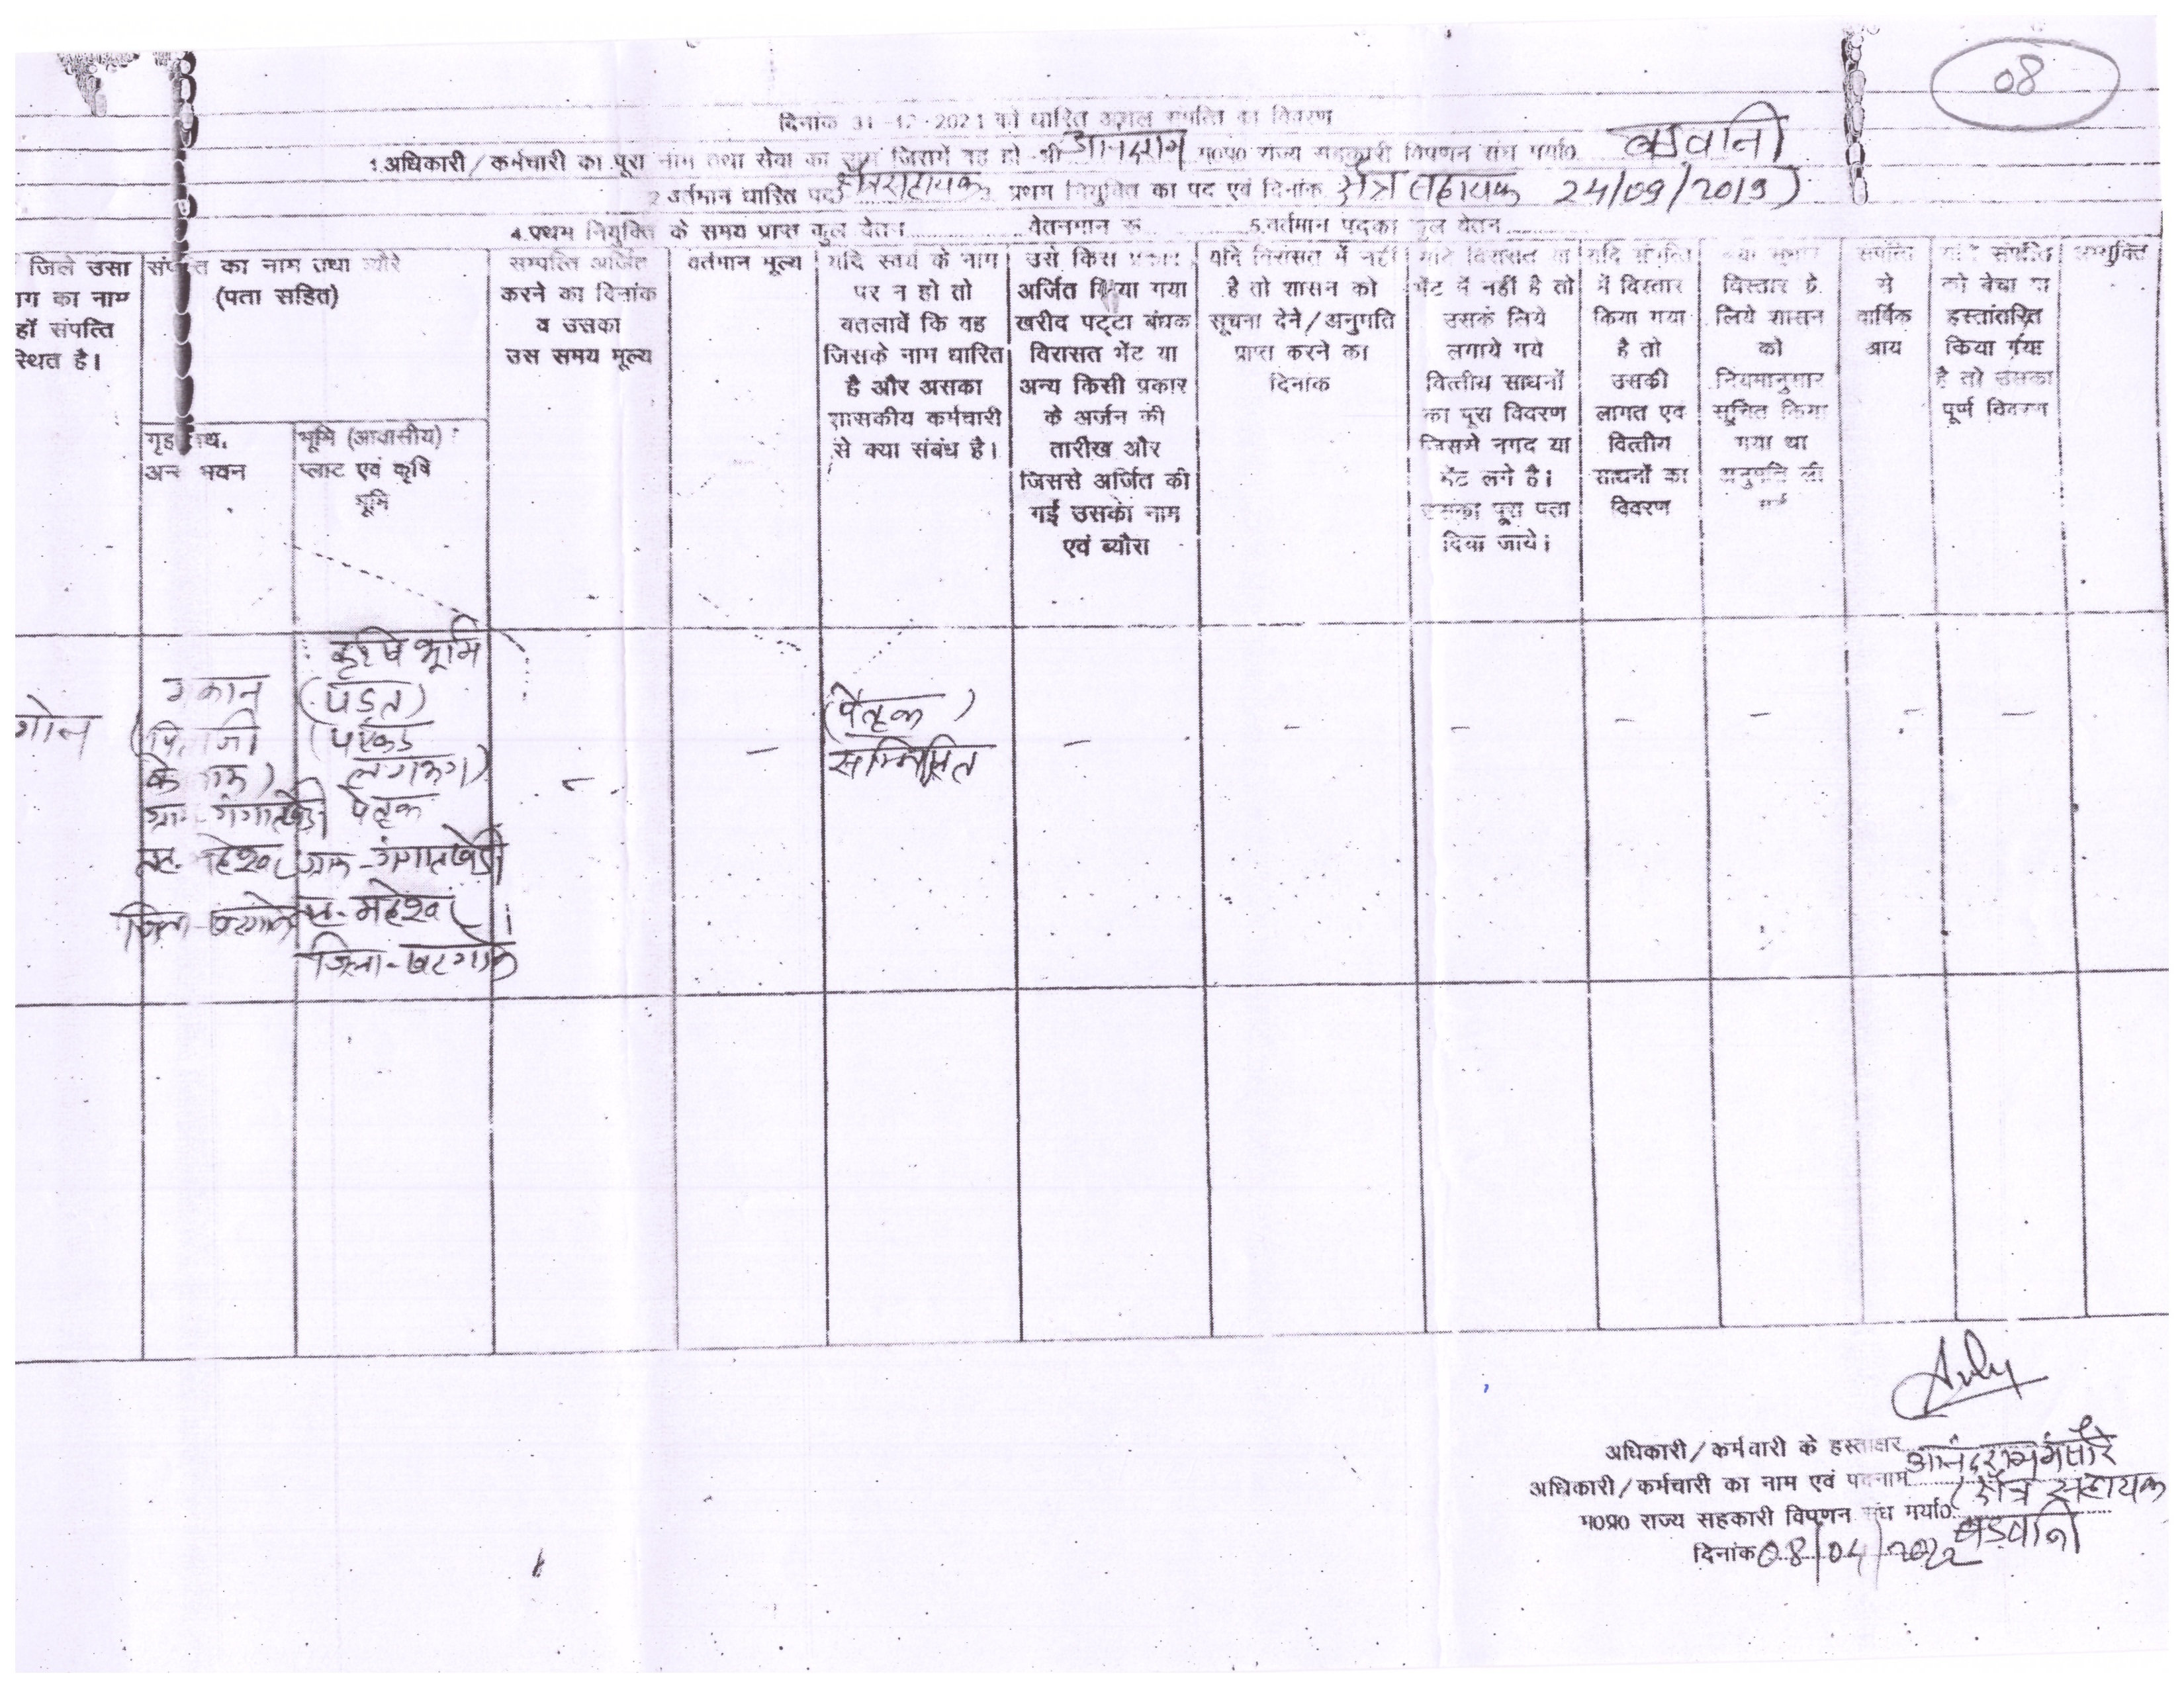 08
दिनांक 31-12-2021 को धारित अचल संपत्ति का विवरण
1.अधिकारी/कर्मचारी का पूरा नाम तथा सेवा का नाम जिसमें वह हो श्री आनंदराम म0प्र0 राज्य सहकारी विपणन संघ मर्या0 बडवानी
2.वर्तमान धारित पद क्षेत्र सहायक 3. प्रथम नियुक्ति का पद एवं दिनांक क्षेत्र सहायक 24/09/2019
4.प्रथम नियुक्ति के समय प्राप्त कुल वेतन वेतनमान रू 5.वर्तमान पदका कुल वेतन
जिले उसा
ाग का नाम
हाँ संपत्ति
स्थित है।
संपत्ति का नाम तथा ब्यौरे
(पता सहित)
गृह
अन्य भवन
भूमि (आवासीय)
प्लाट एवं कृषि
भूमि
सम्पत्ति अर्जित
करने का दिनांक
व उसका
उस समय मूल्य
वर्तमान मूल्य
यदि स्वयं के नाम
पर न हो तो
बतलावें कि वह
जिसके नाम धारित
है और असका
शासकीय कर्मचारी
से क्या संबंध है।
उसे किस प्रकार
अर्जित किया गया
खरीद पट्टा बंधक
विरासत भेंट या
अन्य किसी प्रकार
के अर्जन की
तारीख और
जिससे अर्जित की
गई उसको नाम
एवं ब्यौरा
यदि विरासत में नहीं
है तो शासन को
सूचना देने/अनुमति
प्राप्त करने का
दिनांक
विरासत या
भेंट में नहीं है तो
उसके लिये
लगाये गये
वित्तीय साधनों
का पूरा विवरण
जिसमे नगद या
भेंट लगे है।
उसका पूरा पता
दिया जाये।
यदि संपत्ति
में विस्तार
किया गया
है तो
उसकी
लागत एवं
वित्तीय
साधनों का
विवरण
क्या
विस्तार के
लिये शासन
को
नियमानुसार
सूचित किया
गया था
अनुमति ली
गई
संपत्ति
से
वार्षिक
आय
यदि संपत्ति
को बेचा या
हस्तांतरित
किया गया
है तो उसका
पूर्ण विवरण
अभ्युक्ति
गोन
मकान
(पिताजी
के नाम)
ग्राम-गंगातखेडी
तह. महेश्वर
जिला-खरगोन
कृषि भूमि
(पडत)
लगभग)
पैतृक
ग्राम-गंगातखेडी
तह.-महेश्वर
जिला-खरगोन
-
-
(पैतृक)
सम्मिलित
-
-
-
-
-
-
-
अधिकारी/कर्मचारी के हस्ताक्षर
अधिकारी/कर्मचारी का नाम एवं पदनाम आनंदराम (क्षेत्र सहायक
म0प्र0 राज्य सहकारी विपणन संघ मर्या0 बडवानी
दिनांक 08/04/2022